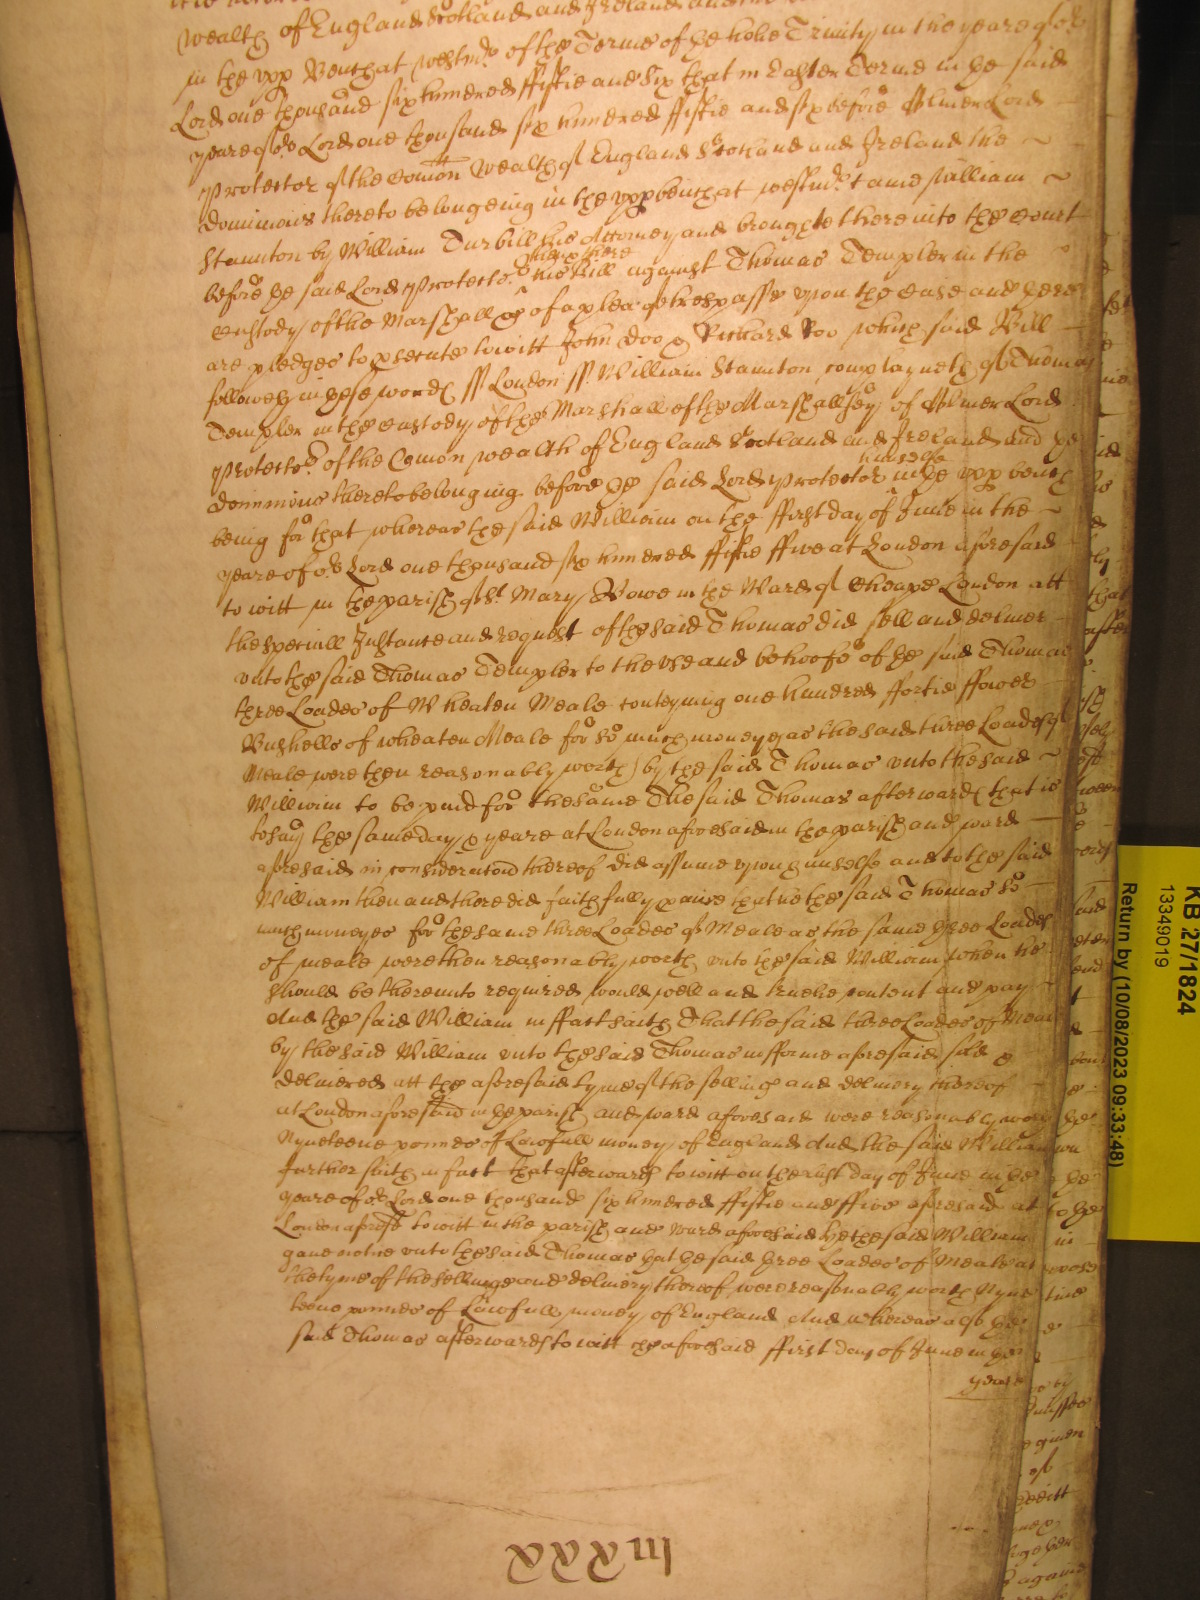 wealth of England Scotland and Ireland and
in the upp Bench at Westmr of the Terme of the holie Trinity in the yeare of or
Lord one thousand six hundred ffiftie and six that in Easter Terme in the said
yeare of or Lord one thousand six hundred ffiftie and six before Oliver Lord
Protector of the Comon wealth of England Scotland and Ireland the
dominions thereto belongeing in the upp bench at westmr came William
Staunton by William Turbill his Attorney and brought here into the Court
before the said Lord Protector then & there his Bill against Thomas Templer in the
custody of the Marshall &c of a plea of trespasse upon the case and there
are pledges to psecute towitt John Doo & Richard Roo which said Bill
followeth in these words ss London ss William Staunton complayneth of Thomas
Templer in the custody of the Marshall of the Marshallsey of Oliver Lord
Protector of the Comon wealth of England Scotland and Ireland and the
dominions thereto belonging before the said Lord Protector himselfe in the upp bench
being for that whereas the said William on the ffirst day of June in the
yeare of or Lord one thousand six hundred ffiftie ffive at London aforesaid
to witt in the parish of St Mary Bowe in the Ward of Cheape London att
the speciall Instance and request of the said Thomas did sell and deliver
unto the said Thomas Templer to the use and behoofe of the said Thomas
three Loades of Wheaten Meale conteyning one hundred ffortie ffower
Bushells of wheaten Meale for so much moneyes as the said three Loades of
Meale were then reasonably worth by the said Thomas unto the said
William to be paid for the same The said Thomas afterwards that is
to say the same day & yeare at London aforesaid in the parish and ward
aforesaid in consideracon thereof did assume upon himselfe and to the said
William then and there did faithfully pmise that he the said Thomas so
much moneyes for the same three Loades of Meale as the same three Loades
of meale were then reasonably worth unto the said William when he
should be thereunto required would well and truelie content and pay
And the said William in ffact saith That the said three Loades of Meale
by the said William unto the said Thomas in fforme aforesaid sold &
delivered att the aforesaid tyme of the selling and delivery thereof
at London aforesaid in the parish and ward aforesaid were reasonably worth
Nyneteene pounds of Lawfull money of England And the said William
further saith in fact that afterwards to witt on the first day of June in the
yeare of or Lord one thousand six hundred ffiftie and ffive aforesaid at
London aforesd to witt in the parish and ward aforesaid he the said William
gave notice unto the said Thomas that the said three Loades of Meale at
the tyme of the selling and delivery thereof were reasonably worth Nyne
teene pounds of Lawfull money of England And whereas also the
said Thomas afterwards to witt the aforesaid ffirst day of June in the
yeare
KB 27/1824
13349019
Return by (10/08/2023 09:33:48)